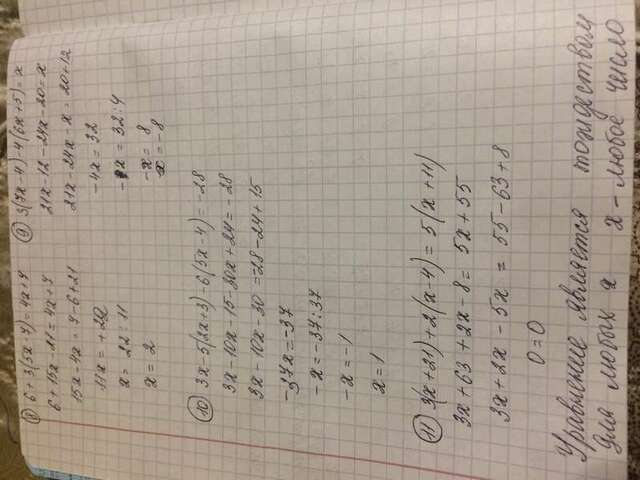 8) 6+3(5x-7)=4x+7
6+15x-21=4x+7
15x-4x=7-6+21
11x=+22
x=22:11
x=2
9) 3(7x-4)-4(6x+5)=x
21x-12-24x-20=x
21x-24x-x=20+12
-4x=32
-x=32:4
-x=8
x=-8
10) 3x-5(2x+3)-6(5x-4)=-28
3x-10x-15-30x+24=-28
3x-10x-30=-28-24+15
-37x=-37
-x=-37:37
-x=-1
x=1
11) 3(x+21)+2(x-4)=5(x+11)
3x+63+2x-8=5x+55
3x+2x-5x=55-63+8
0=0
Уравнение является тождеством
для любых x x-любое число